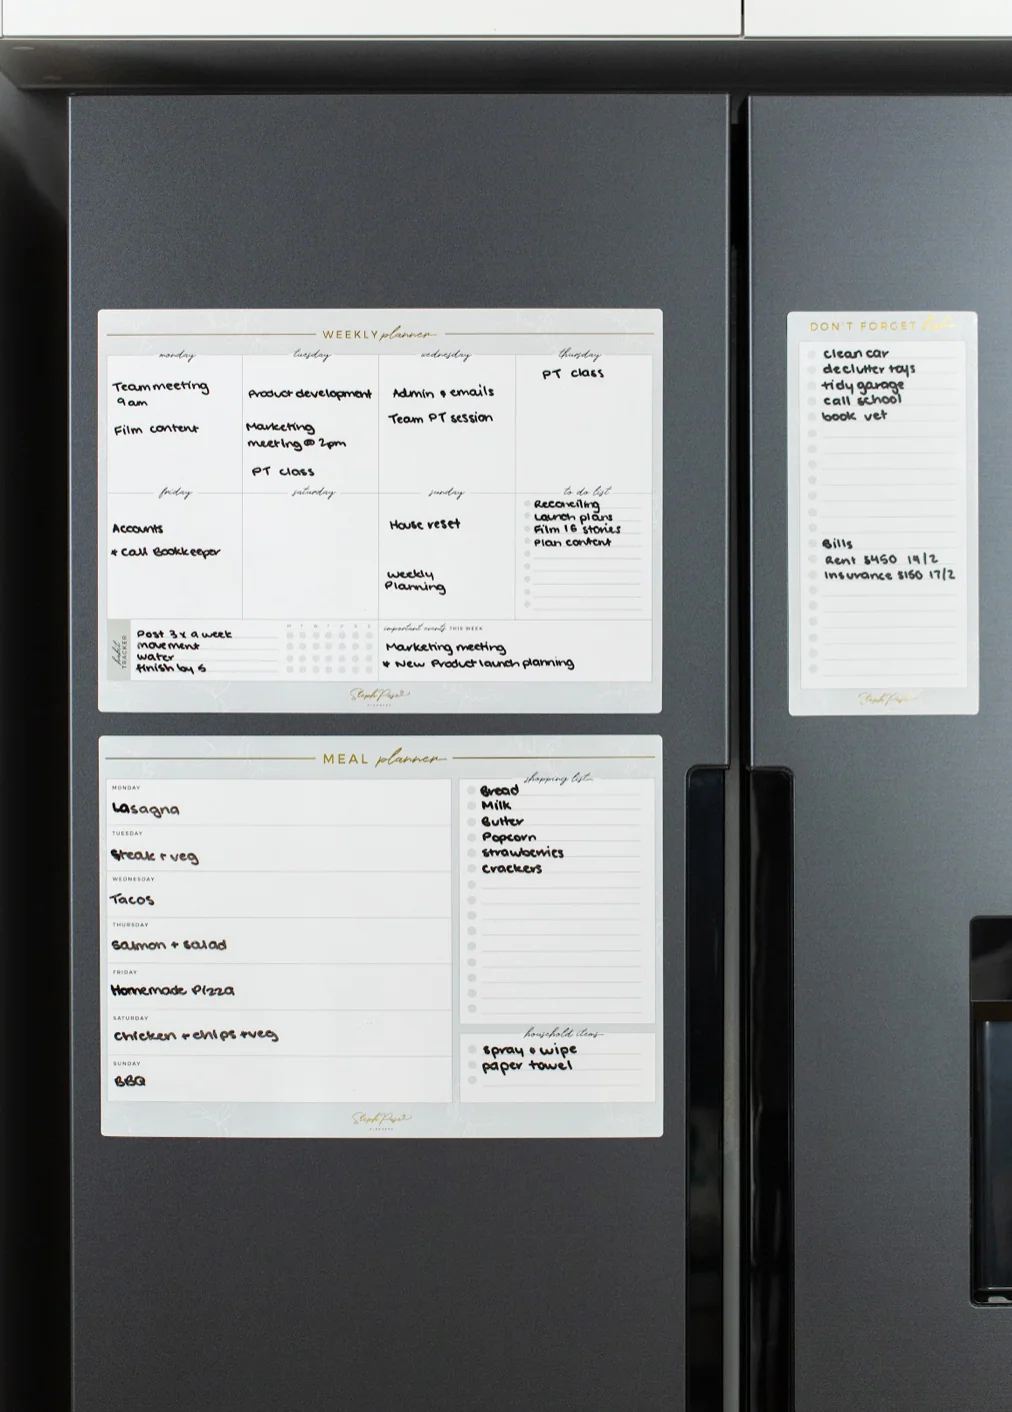 WEEKLY planner
monday
tuesday
wednesday
thursday
Team meeting
9am
Film content
Product development
Marketing
meeting @ 2pm
PT class
Admin & emails
Team PT session
PT class
friday
saturday
sunday
to do list
Accounts
* Call Bookkeeper
House reset
Weekly
Planning
Reconciling
Launch plans
Film IG stories
Plan content
habit TRACKER
M T W T F S S
Post 3x a week
movement
water
finish by 5
important events THIS WEEK
Marketing meeting
* New Product launch planning
Steph Pase
PLANNERS
DON'T FORGET list
clean car
declutter toys
tidy garage
call school
book vet
Bills
Rent $450 14/2
Insurance $150 17/2
Steph Pase
MEAL planner
MONDAY
Lasagna
TUESDAY
Steak + veg
WEDNESDAY
Tacos
THURSDAY
Salmon + salad
FRIDAY
Homemade Pizza
SATURDAY
Chicken + chips + veg
SUNDAY
BBQ
shopping list
Bread
Milk
Butter
Popcorn
Strawberries
Crackers
household items
spray & wipe
paper towel
Steph Pase
PLANNERS